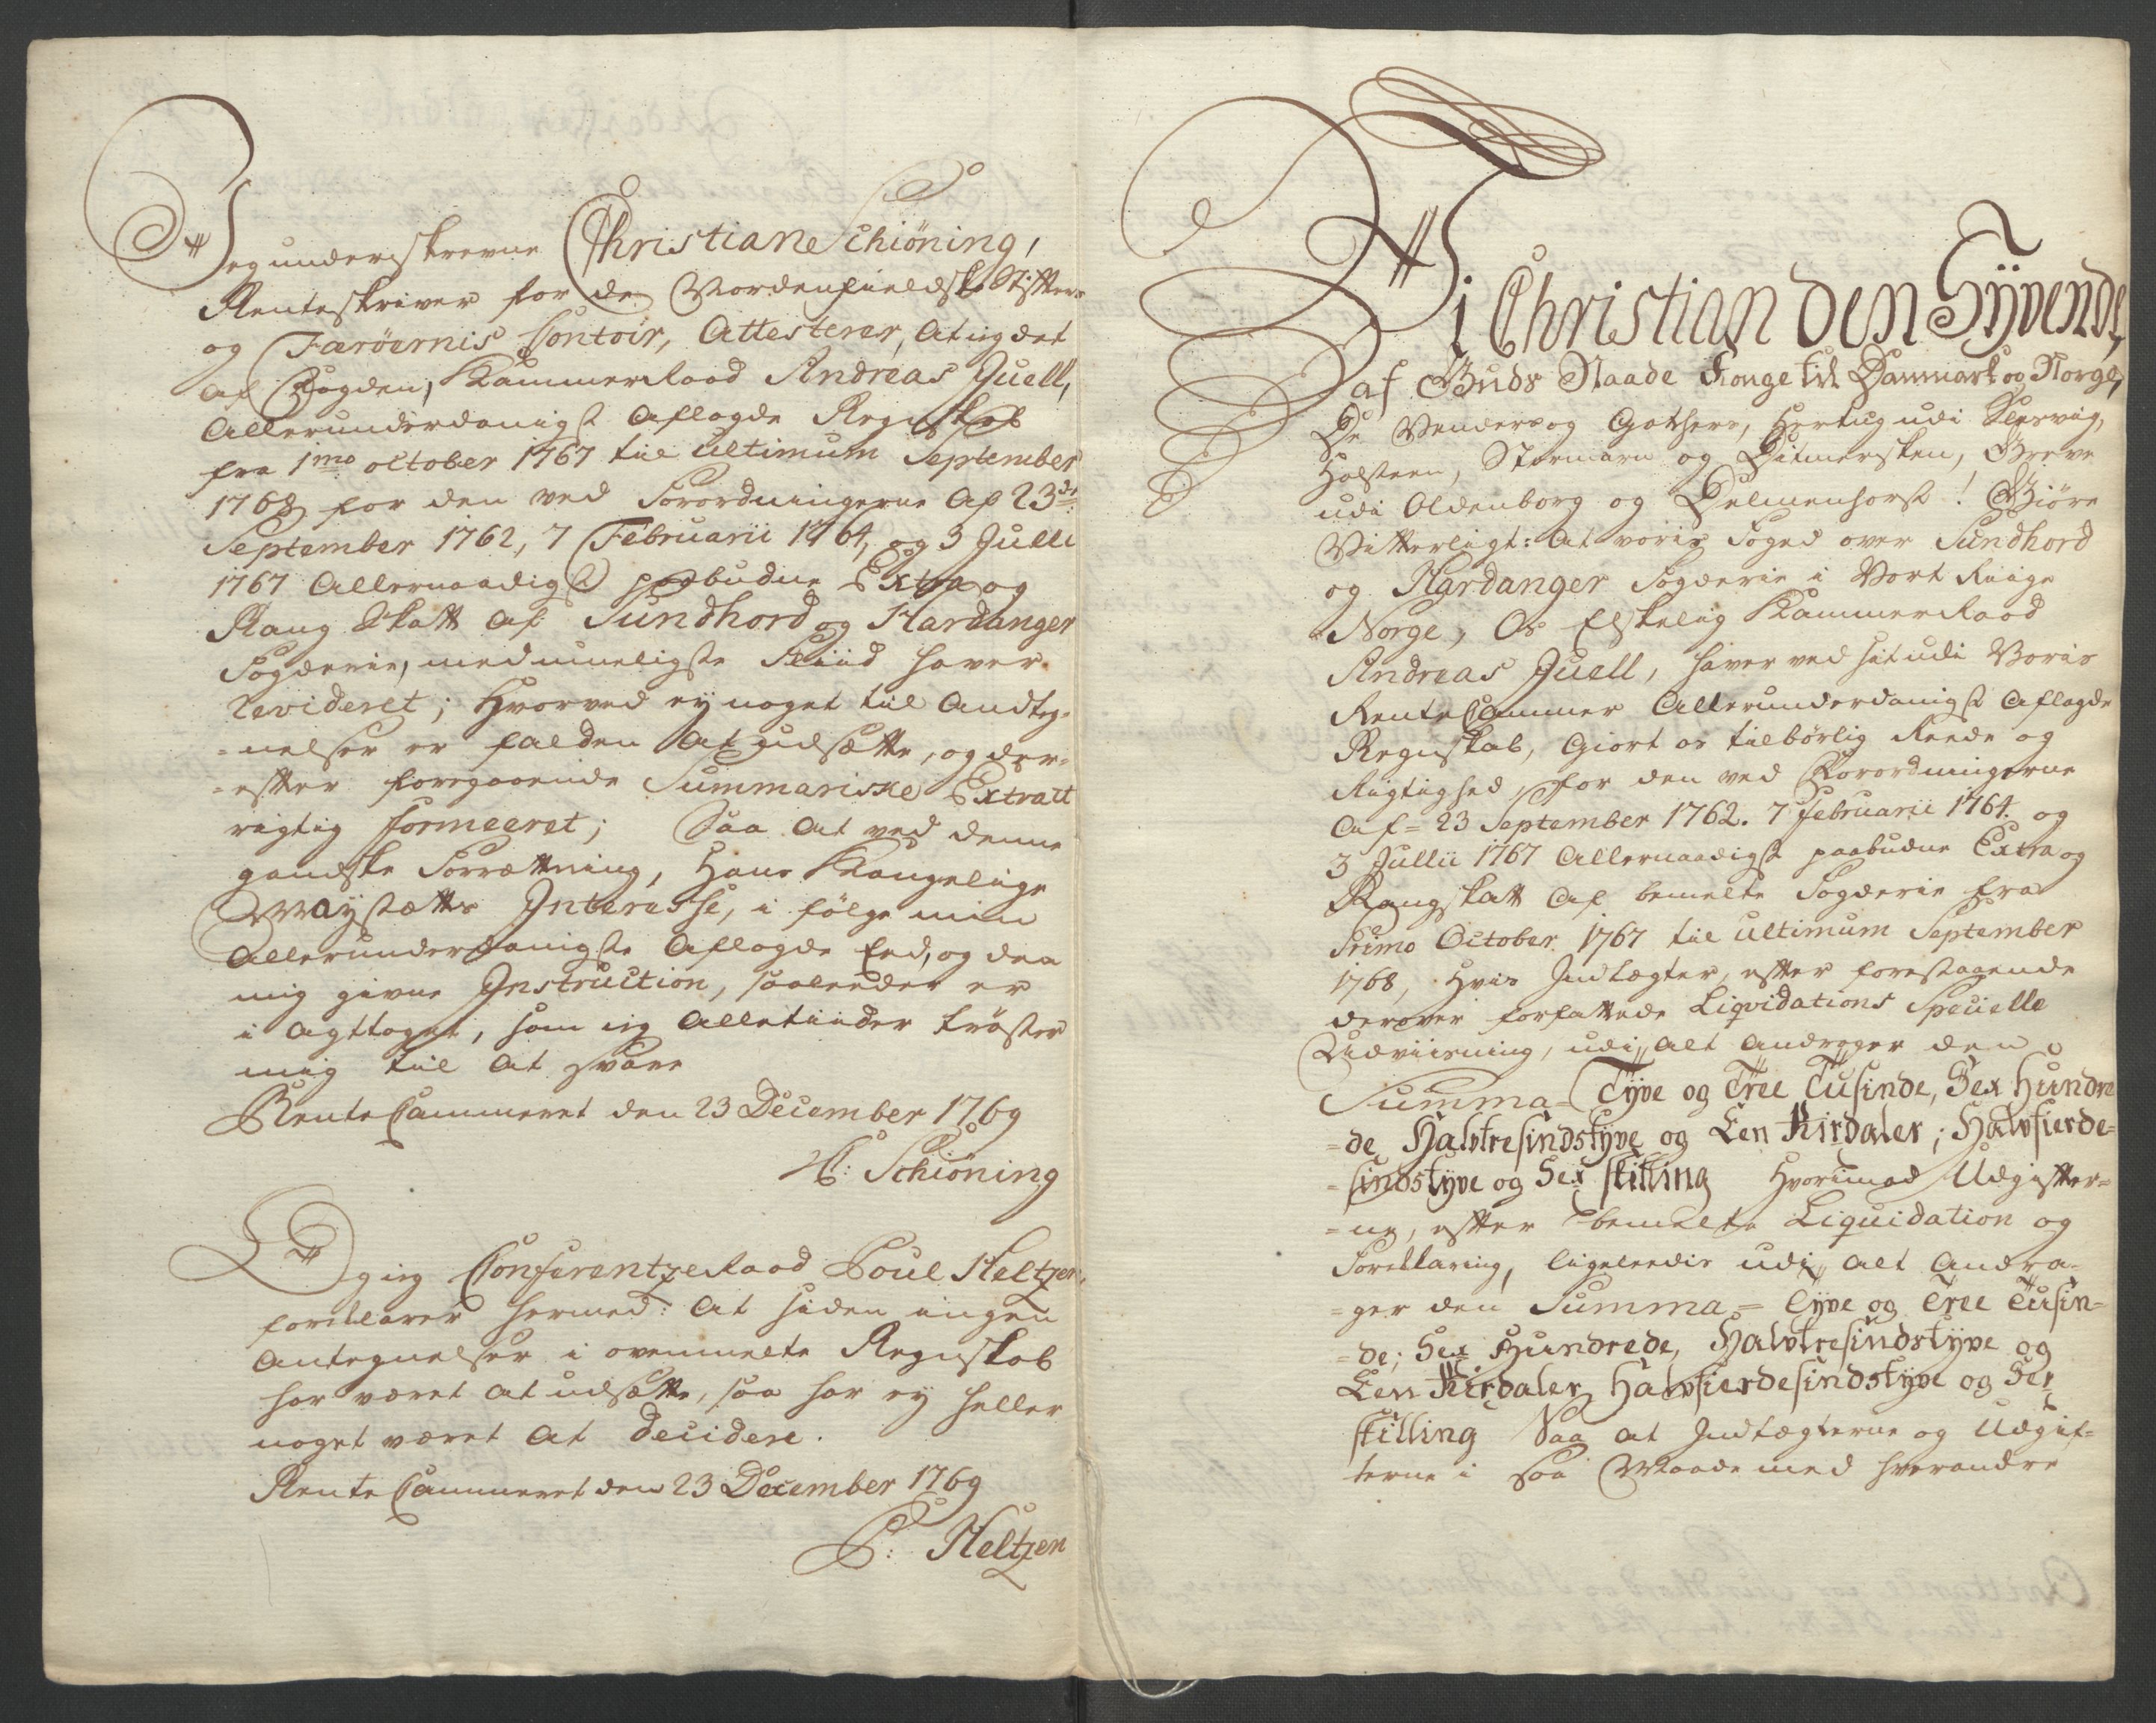 Jeg underskrevne Christian Schiöning,
Renteskriver for de Nordenfieldske Stifters
og Færöernis Contoir, Attesterer, at ieg det
af Fogden, Kammer Raad Andreas Juell,
Allerunderdanigst aflagde Regnskab
fra 1mo october 1767 til ultimum September
1768 for den ved Forordningerne af 23de
September 1762, 7 Februarii 1764, og 3 Julli
1767 Allernaadigst paabudne Extra og
Rang Skatt af Sundhord og Hardanger
Fogderie, med mueligste Fliid haver
revideret; Hvorved ey noget til Andteg-
=nelser er falden at udsætte, og der-
=efter foregaaende Summariske Extract
rigtig formeeret; Saa at ved denne
gandske Forrætning, Hans Kongelige
Mayestætts Interesse, i fölge min
Allerunderdanigste aflagde Eed, og den
mig givne Instruction, saaleedes er
i agttaget, som ieg alletiider tröster
mig til at svare
Rente Cammeret den 23 December 1769
C: Schiöning
Og ieg Conferentze Raad Poul Heltzen,
forklarer hermed: at siden ingen
Antegnelser i ovenmelte Regnskab
har været at udsætte, saa har ey heller
noget været at decidere.
Rente Cammeret den 23 December 1769
P: Heltzen
Wi Christian den Syvende,
af Guds Naade Konge til Danmark og Norge,
De Venders og Gothers, Hertug udi Slesvig,
Holsteen, Stormarn og Ditmersken, Greve
udi Oldenborg og Delmenhorst! Giöre
Vitterligt: at voris Foged over Sundhord
og Hardanger Fogderie i Vort Riige
Norge, Os Elskelig Kammer Raad
Andreas Juell, haver ved sit udi Voris
Rente Cammer Allerunderdanigst aflagde
Regnskab, giort os tilbørlig Reede og
Rigtighed, for den ved Forordningerne
af = 23 September 1762. 7 Februarii 1764. og
3 Jullii 1767 Allernaadigst paabudne Extra og
Rangskatt af bemelte Fogderie fra
Primo October 1767 til ultimum September
1768, Hvis Indtægter, efter forestaaende
derover forfattede Liqvidations Specielle
Udviisning, udi alt andrager den
Summa = Tyve og Tree Tusinde, Sex Hundre
=de Halvtresindstyve og Een Rixdaler; Halvfierde=
=sindstyve og Sex skilling Hvorimod Udgifter=
=ne, efter bemelte Liquidation og
Forklaring, ligeleedis udi alt andra=
=ger den Summa = Tyve og Tree Tusin=
=de; Sex Hundrede, Halvtresindstyve og
Een Rixdaler Halvfierdesindstyve og Sex
skilling Saa at Indtægterne og Udgif=
terne i saa Maade med hverandre